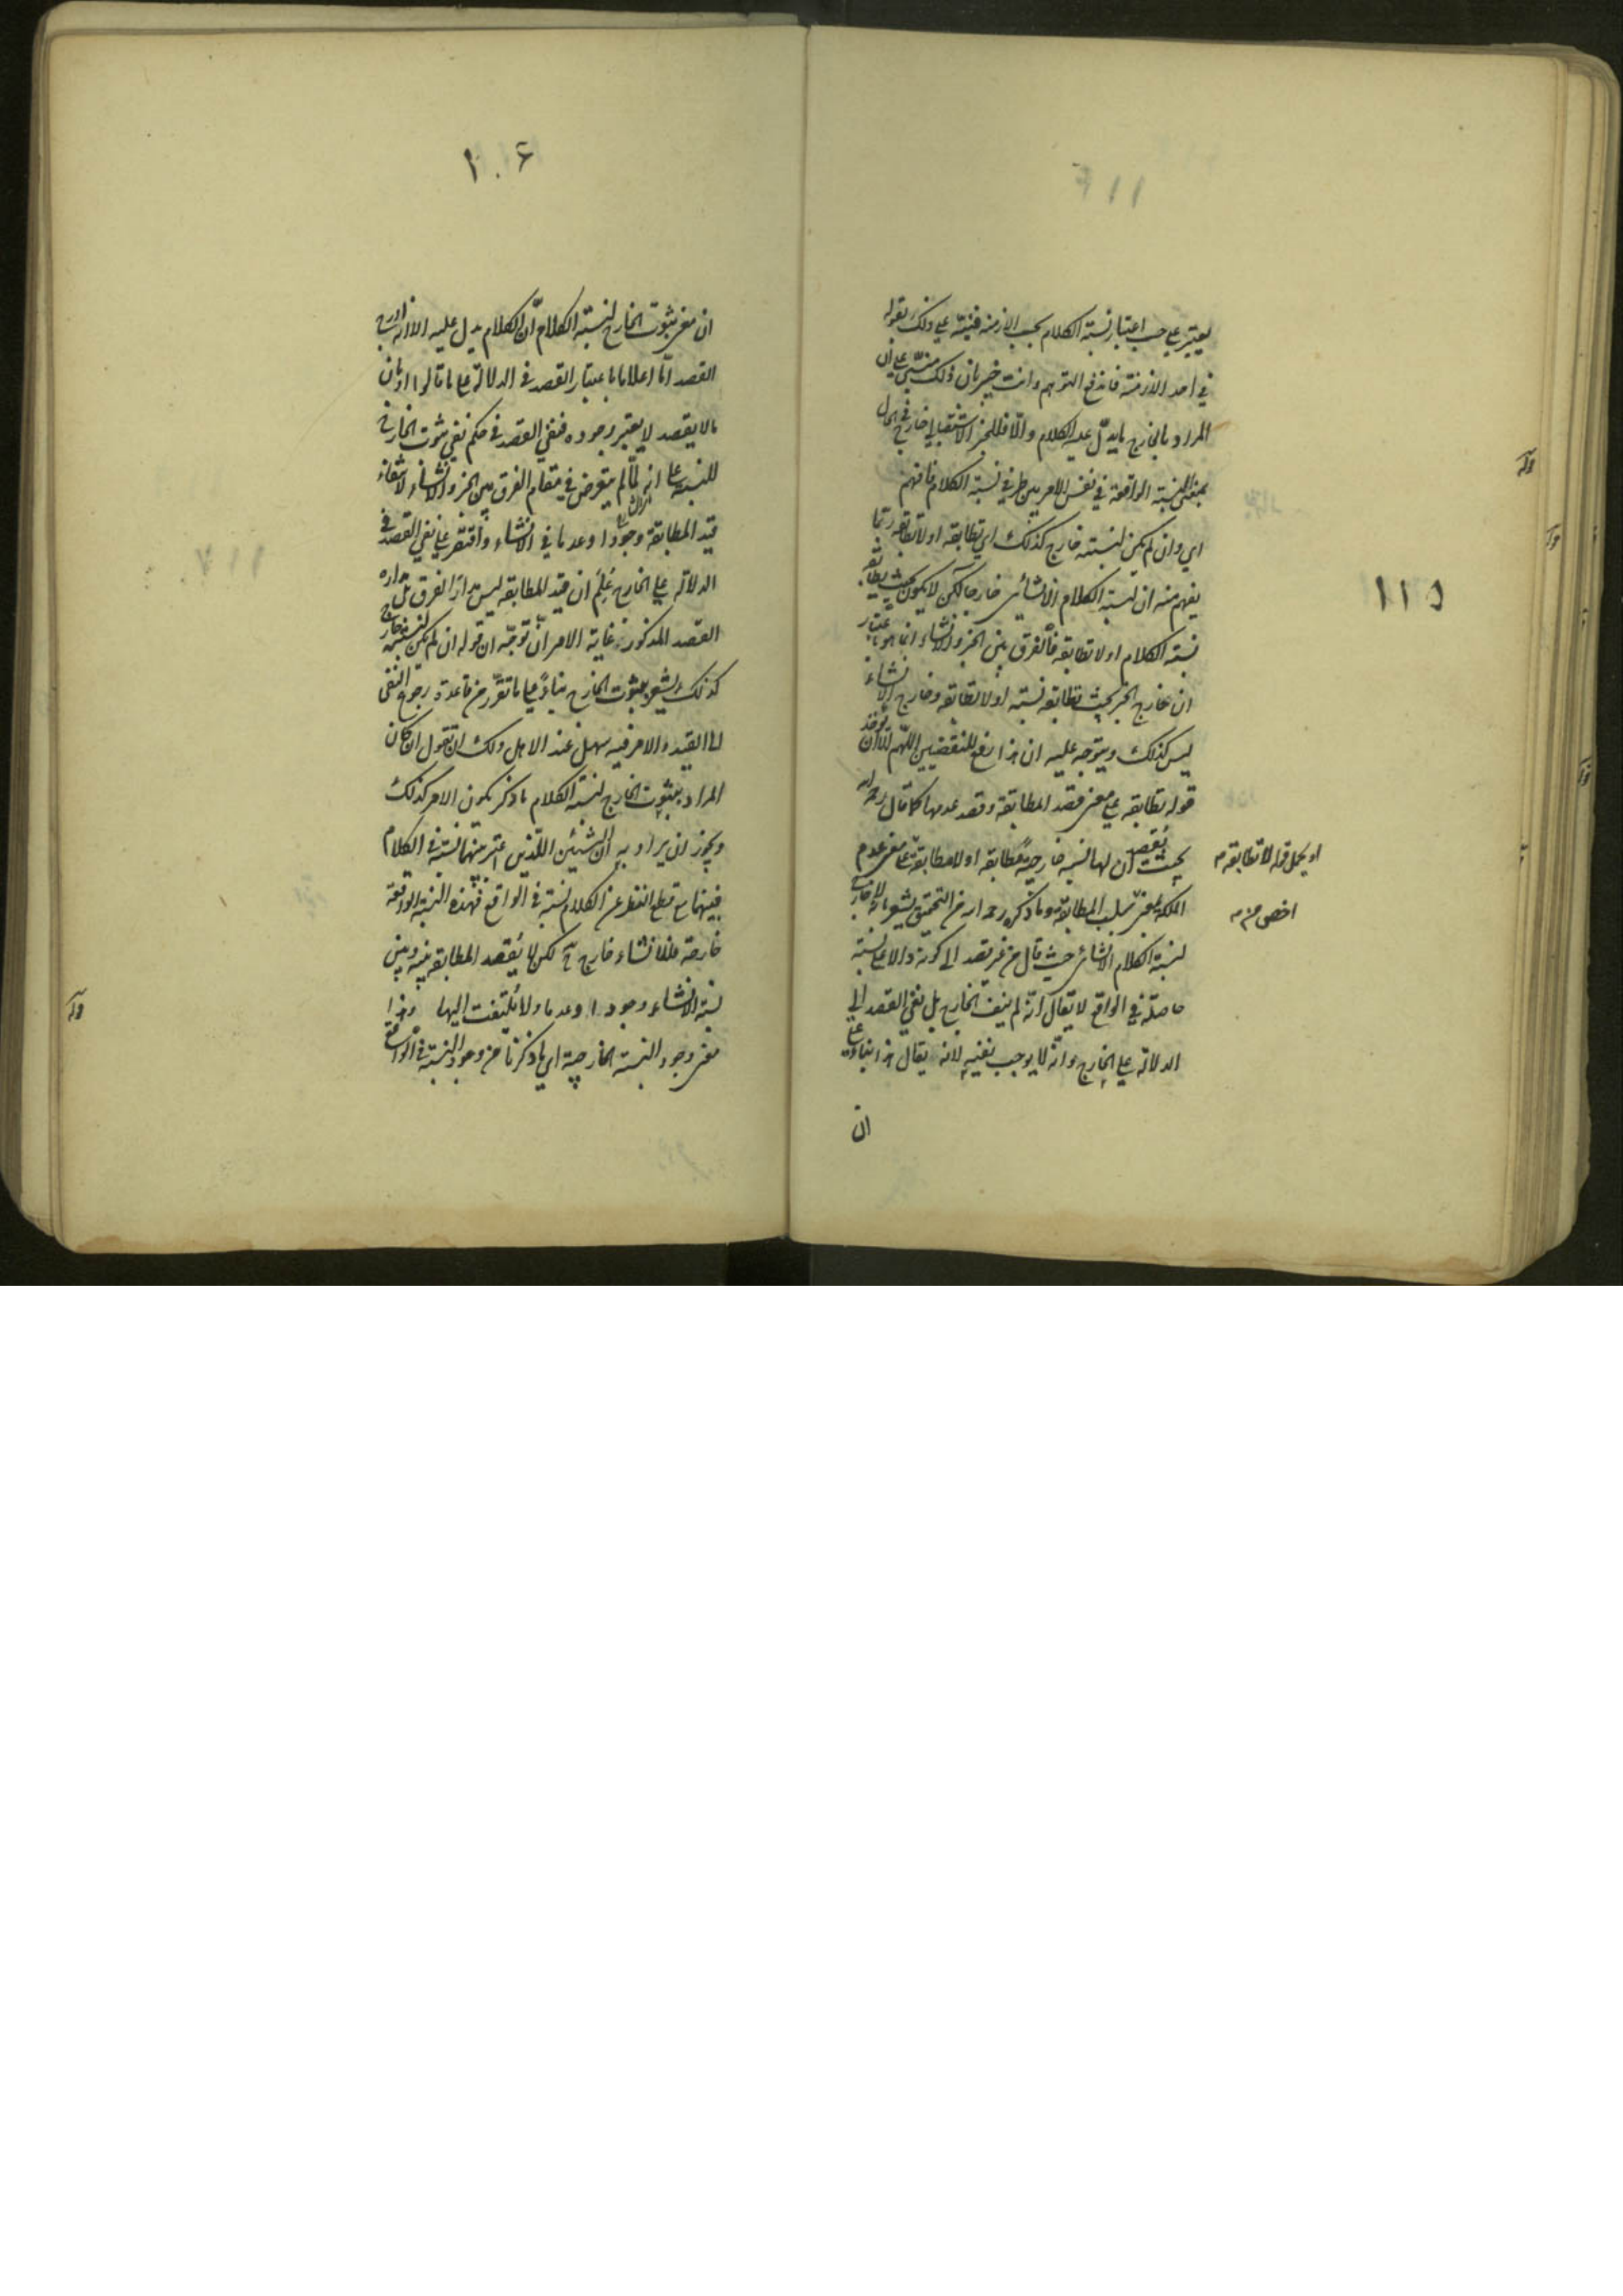 ١١٥
يعتبر على حسب اعتبار نسبة الكلام بحسب الازمنة فنبه على ذلك بقوله
في احد الازمنة فاندفع التوهم وانت خبير بان ذلك مبني على ان
المراد بالخارج ما يدل عليه الكلام والا فللخبر الاستقبالي خارج في الحال
بمعنى النسبة الواقعة في نفس الامر بين طرفي نسبة الكلام فافهم
اي وان لم يكن لنسبته خارج كذلك اي تطابقه او لا تطابقه ربما
يفهم منه ان لنسبة الكلام الانشائي خارجا لكن لا يكون بحيث يطابقه
نسبة الكلام او لا تطابقه فالفرق بين الخبر والانشاء انما هو باعتبار
ان خارج الخبر بحيث تطابقه نسبته او لا تطابقه وخارج الانشاء
ليس كذلك ويتوجه عليه ان هذا رفع للنقيضين اللهم الا ان يؤخذ
قوله تطابقه على معنى قصد المطابقة وقصد عدمها كما قال رحمه الله
بحيث يقصد ان لها نسبة خارجية مطابقة او لا مطابقة على معنى عدم
او يحمل قوله لا تطابقه
الملكة بمعنى سلب المطابقة وما ذكره رحمه الله من التحقيق يشعر بانه لا خارج
اخص منه
لنسبة الكلام الانشائي حيث قال من غير قصد الى كونه دالا على نسبة
حاصلة في الواقع لا يقال انه لم ينف الخارج بل نفي القصد الى
الدلالة على الخارج وانه لا يوجب نفيه لانه يقال هذا بناء على
ان
١٠٦
ان معنى ثبوت الخارج لنسبة الكلام ان الكلام يدل عليه الا انه ادرج
القصد اما اعلاما باعتبار القصد في الدلالة على ما قالوا او بان
ما لا يقصد لا يعتبر وجوده فنفي القصد في حكم نفي ثبوت الخارج
للنسبة على انه لما لم يتعرض في مقام الفرق بين الخبر والانشاء لانتفاء
قيد المطابقة وجودا وعدما في الانشاء واقتصر على نفي القصد في
الدلالة على الخارج علم ان قيد المطابقة ليس مدار الفرق بل مداره
القصد المذكور غاية الامر انه توجه ان قوله ان لم يكن لنسبته خارج
كذلك يشعر بثبوت الخارج بناء على ما تقرر من قاعدة رجوع النفي
الى القيد والامر فيه سهل عند الاهل ولك ان تقول ان كان
المراد بثبوت الخارج لنسبة الكلام ما ذكر يكون الامر كذلك
ويجوز ان يراد به ان الشيئين اللذين اعتبر بينهما نسبة في الكلام
فبينهما مع قطع النظر عن الكلام نسبة في الواقع فهذه النسبة الواقعة
خارجة فللانشاء خارج ح لكن لا يقصد المطابقة بينه وبين
نسبة الانشاء وجودا وعدما ولا يلتفت اليها وهذا
معنى وجود النسبة الخارجية اي ما ذكرنا من وجود النسبة في الواقع
قوله